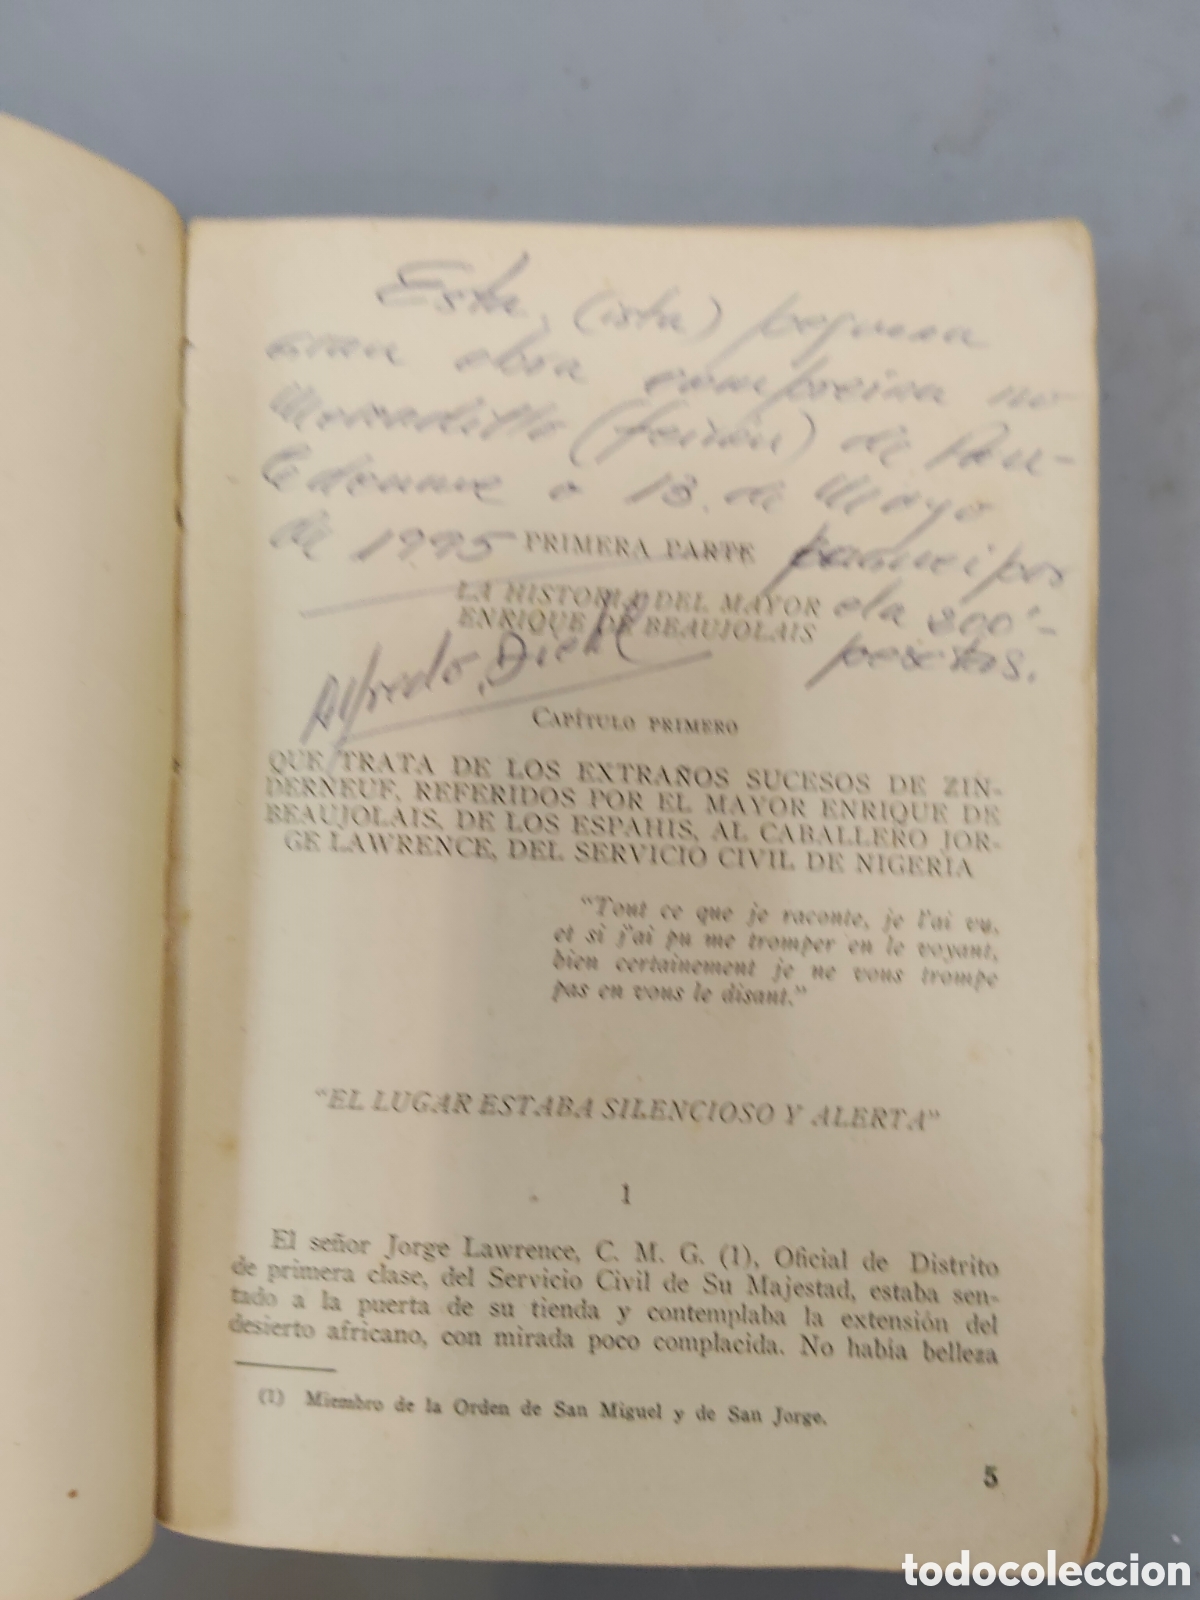 Esta, (ista) pequena
gran obra compreina no
Mercadillo (feirón) de Pan-
de 13 de Mayo
de 1995 paguei por
ela 800'-
pesetas.
Alfredo
PRIMERA PARTE
LA HISTORIA DEL MAYOR
ENRIQUE DE BEAUJOLAIS
CAPÍTULO PRIMERO
QUE TRATA DE LOS EXTRAÑOS SUCESOS DE ZIN-
DERNEUF, REFERIDOS POR EL MAYOR ENRIQUE DE
BEAUJOLAIS, DE LOS ESPAHIS, AL CABALLERO JOR-
GE LAWRENCE, DEL SERVICIO CIVIL DE NIGERIA
"Tout ce que je raconte, je l'ai vu,
et si j'ai pu me tromper en le voyant,
bien certainement je ne vous trompe
pas en vous le disant."
"EL LUGAR ESTABA SILENCIOSO Y ALERTA"
1
El señor Jorge Lawrence, C. M. G. (1), Oficial de Distrito
de primera clase, del Servicio Civil de Su Majestad, estaba sen-
tado a la puerta de su tienda y contemplaba la extensión del
desierto africano, con mirada poco complacida. No había belleza
(1) Miembro de la Orden de San Miguel y de San Jorge.
5
todocoleccion